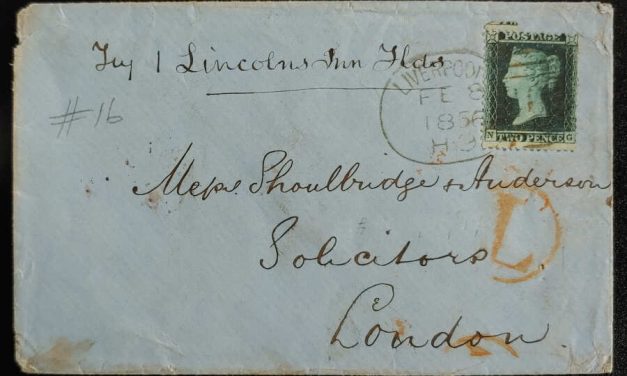 Try 1 Lincolns Inn Flds
#16
LIVERPOOL
FE 8
1856
H 9
POSTAGE
N TWO PENCE G
Messrs Shoulbridge & Anderson
Solicitors
London
L